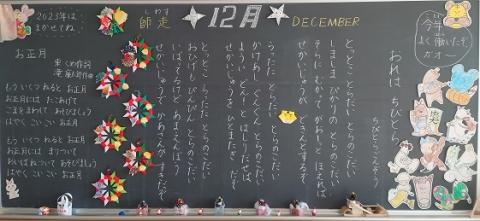 2023年は
まかせてね！
師走
しわす
12月
DECEMBER
今年
よく働いたぞ
ガオー
おれは ちびとら
ちびとらこんそう
とっとこ とらだい とらのこだい
しましま ぴかりの とらのこだい
それに むかって がおーと ほえれば
せかいじゅうが
うったた とらだい とらのこだい
かけあし ぐんぐん とらのこだい
よーい どんーと はしりだせば
せかいじゅうを ひとまたぎ だぞ
とっとこ とらだい とらのこだい
おひげも ぴんぴん とらのこだい
いばってるけど あまえんぼう
せかいじゅうで かあさんがすきだぞ
お正月
東くめ作詞
滝廉太郎作曲
もう いくつ ねると お正月
お正月には たこあげて
こまを まわして あそびましょう
はやく こい こい お正月
もう いくつ ねると お正月
お正月には まりついて
おいばねついて あそびましょう
はやく こい こい お正月